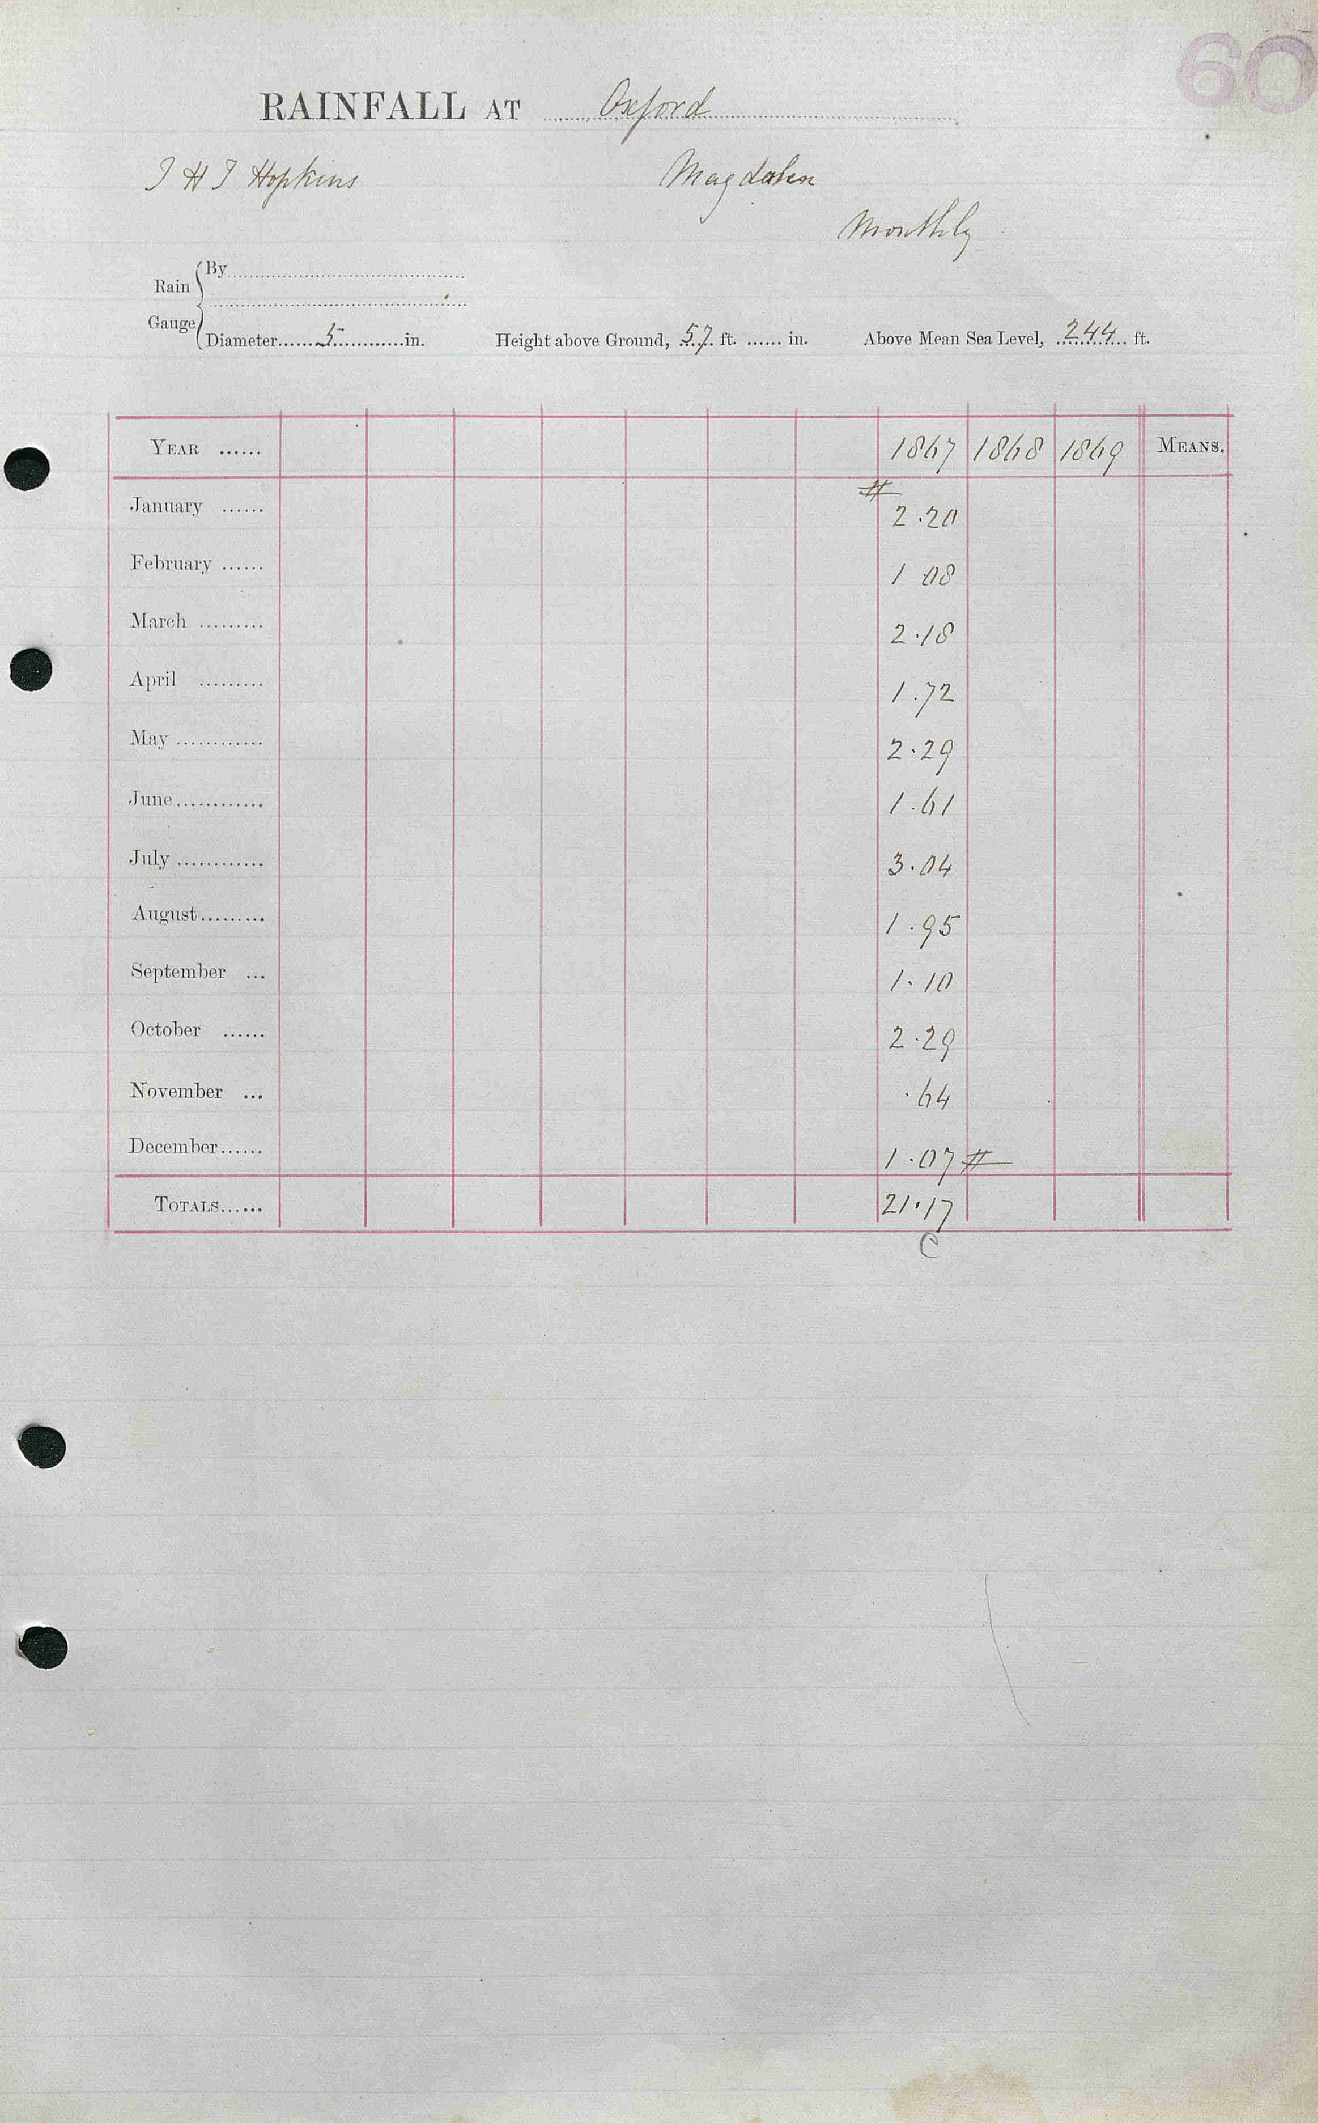 60
RAINFALL AT Oxford
J H T Hopkins Magdalen
Monthly
Rain Gauge By
Diameter 5 in. Height above Ground, 57 ft. in. Above Mean Sea Level, 244 ft.
YEAR 1867 1868 1869 MEANS.
January # 2.20
February 1 08
March 2.18
April 1.72
May 2.29
June 1.61
July 3.04
August 1.95
September 1.10
October 2.29
November .64
December 1.07 #
TOTALS 21.17
C